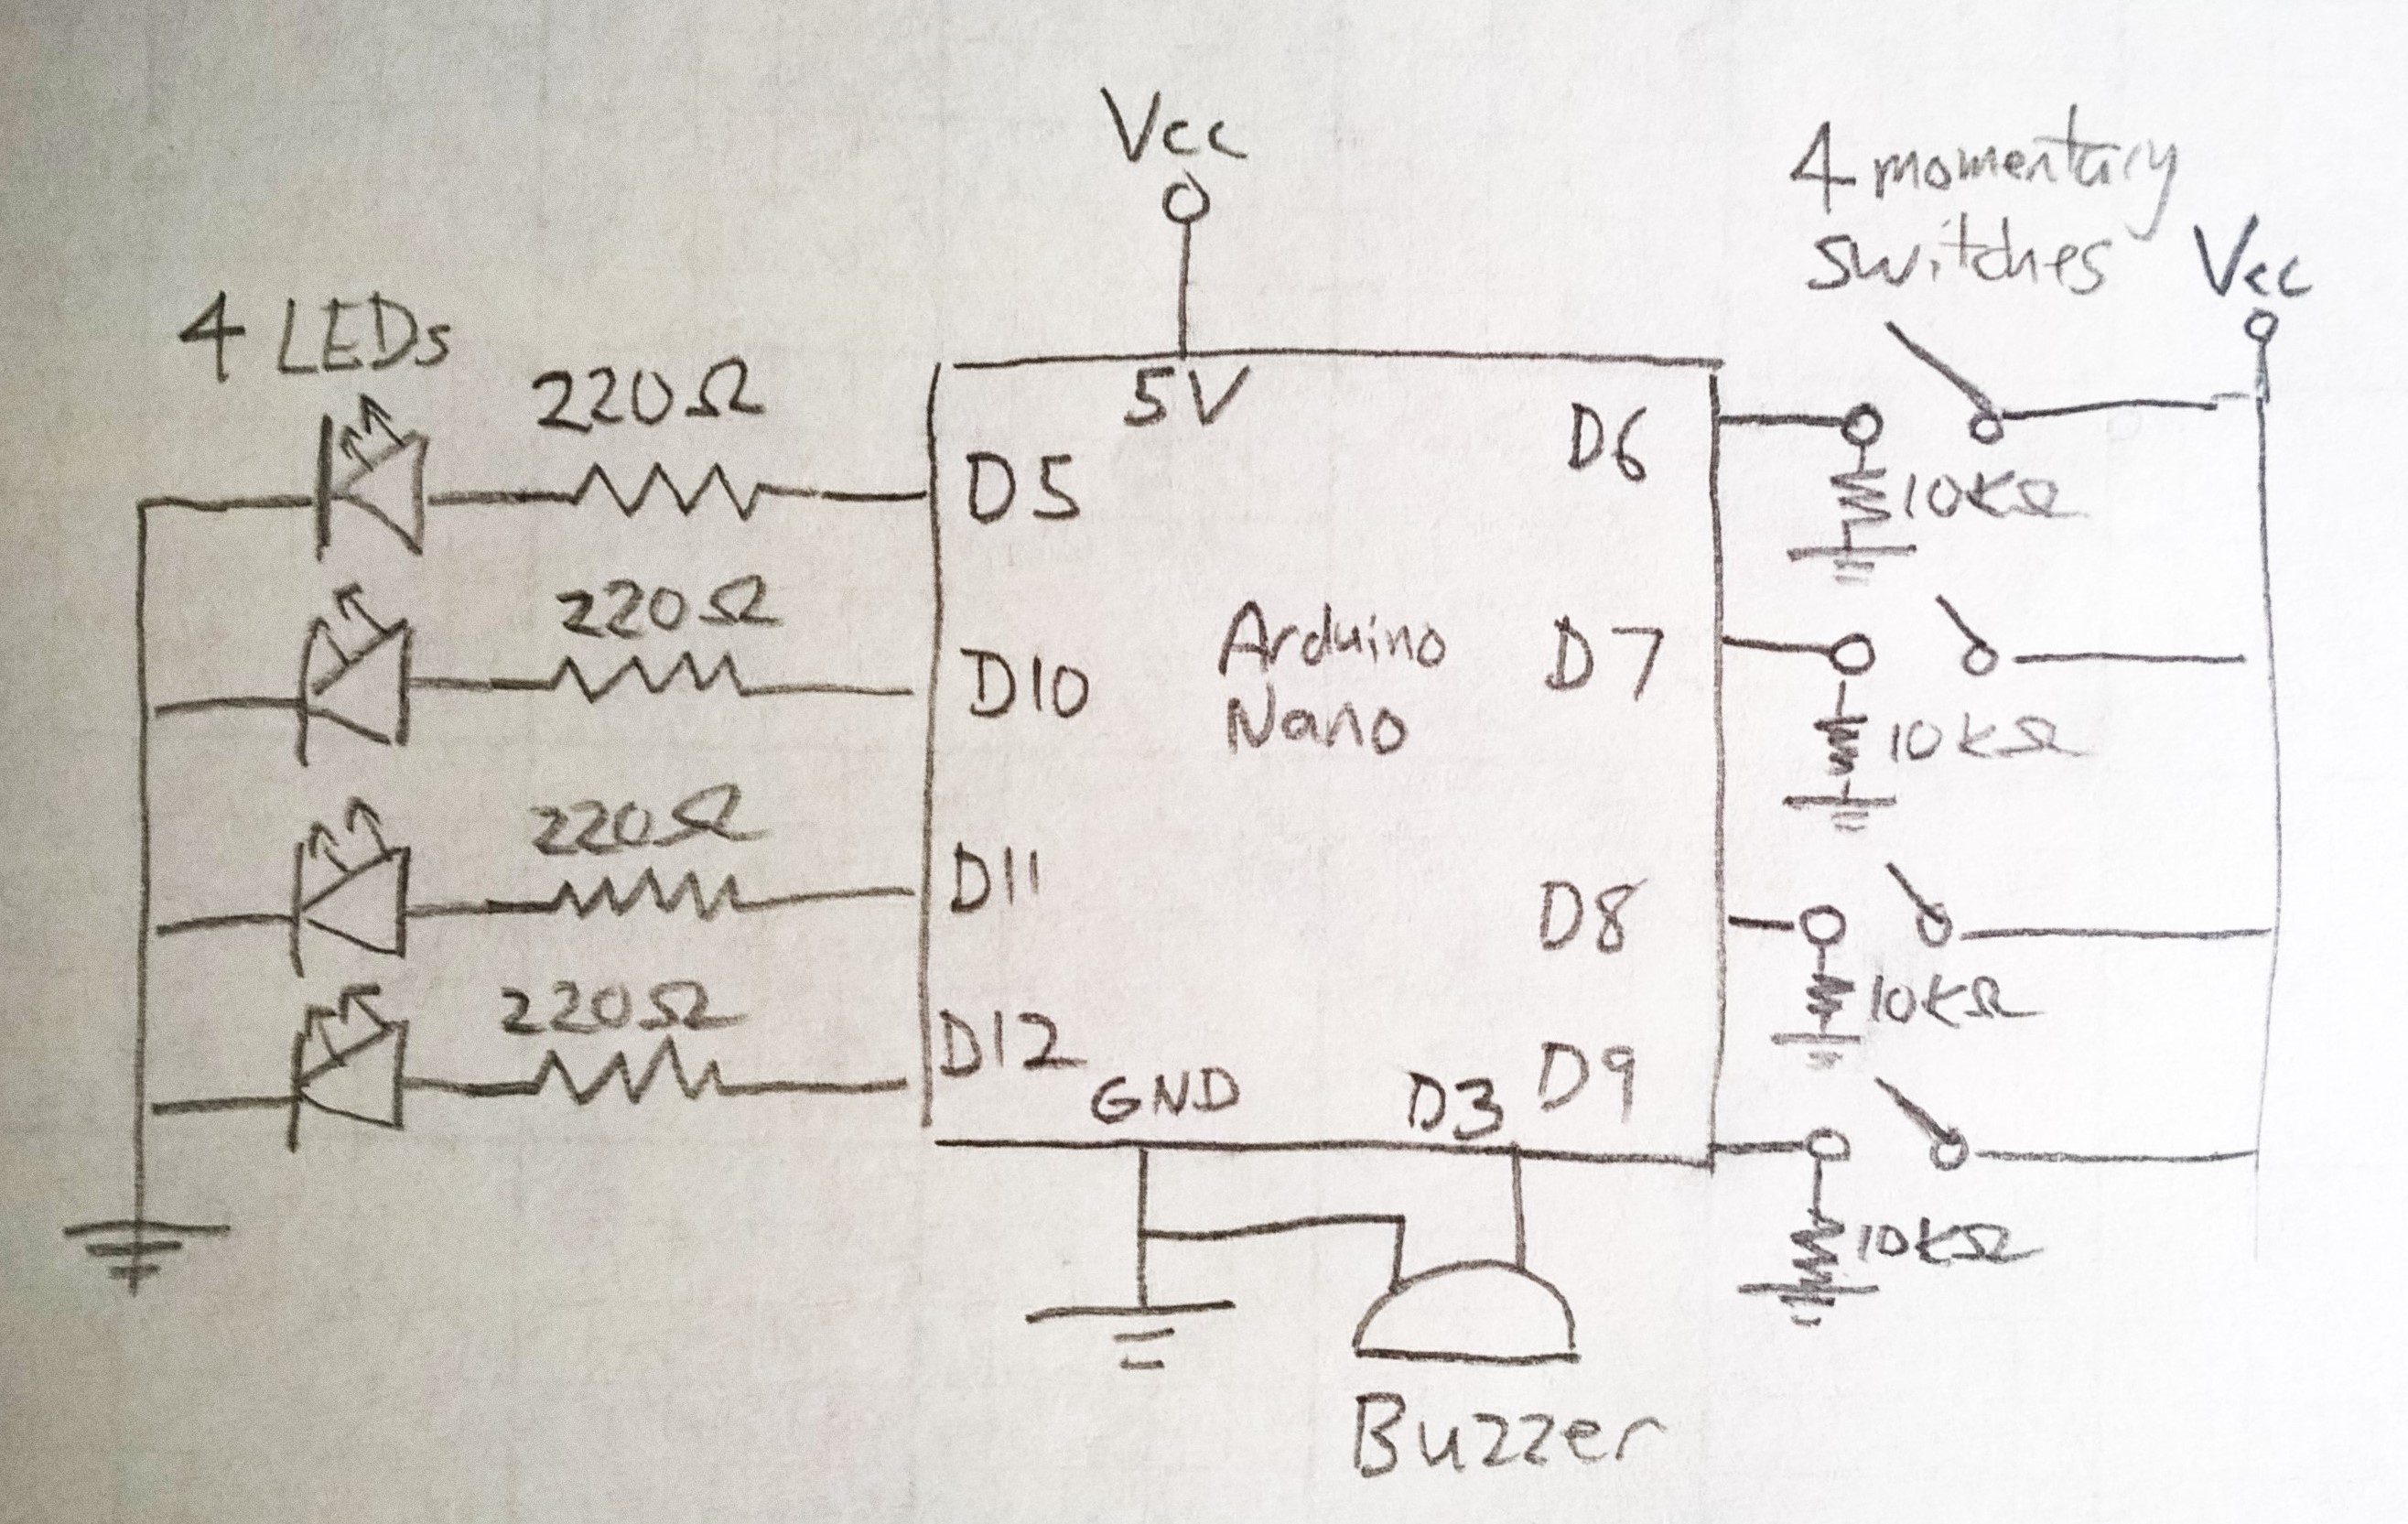 Vcc
4 momentary
switches
Vcc
4 LEDs
220Ω
5V
D6
D5
10KΩ
220Ω
D10
Arduino
Nano
D7
10KΩ
220Ω
D11
D8
10KΩ
220Ω
D12
GND
D3
D9
10KΩ
Buzzer